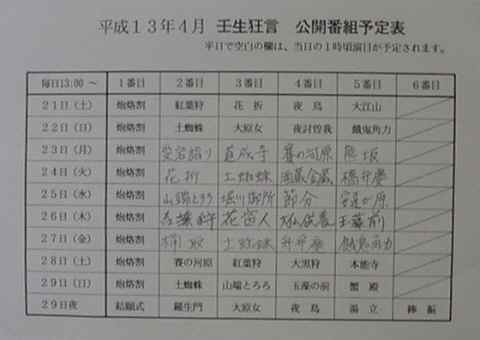 平成13年4月 壬生狂言 公開番組予定表
平日で空白の欄は、当日の1時頃演目が予定されます。
毎日13:00 ～ 1番目 2番目 3番目 4番目 5番目 6番目
21日(土) 炮烙割 紅葉狩 花折 夜鳥 大江山
22日(日) 炮烙割 土蜘蛛 大原女 夜討曽我 餓鬼角力
23日(月) 炮烙割 道成寺 賽の河原 熊坂
24日(火) 炮烙割 花折 土蜘蛛 橋弁慶
25日(水) 炮烙割 山端とろろ 堀川御所 節分 安達が原
26日(木) 炮烙割 花盗人 大仏供養 玉藻前
27日(金) 炮烙割 桶取 土蜘蛛 餓鬼角力
28日(土) 炮烙割 賽の河原 紅葉狩 大黒狩 本能寺
29日(日) 炮烙割 土蜘蛛 山端とろろ 玉藻の前 蟹殿
29日夜 結願式 羅生門 大原女 夜鳥 湯立 棒振